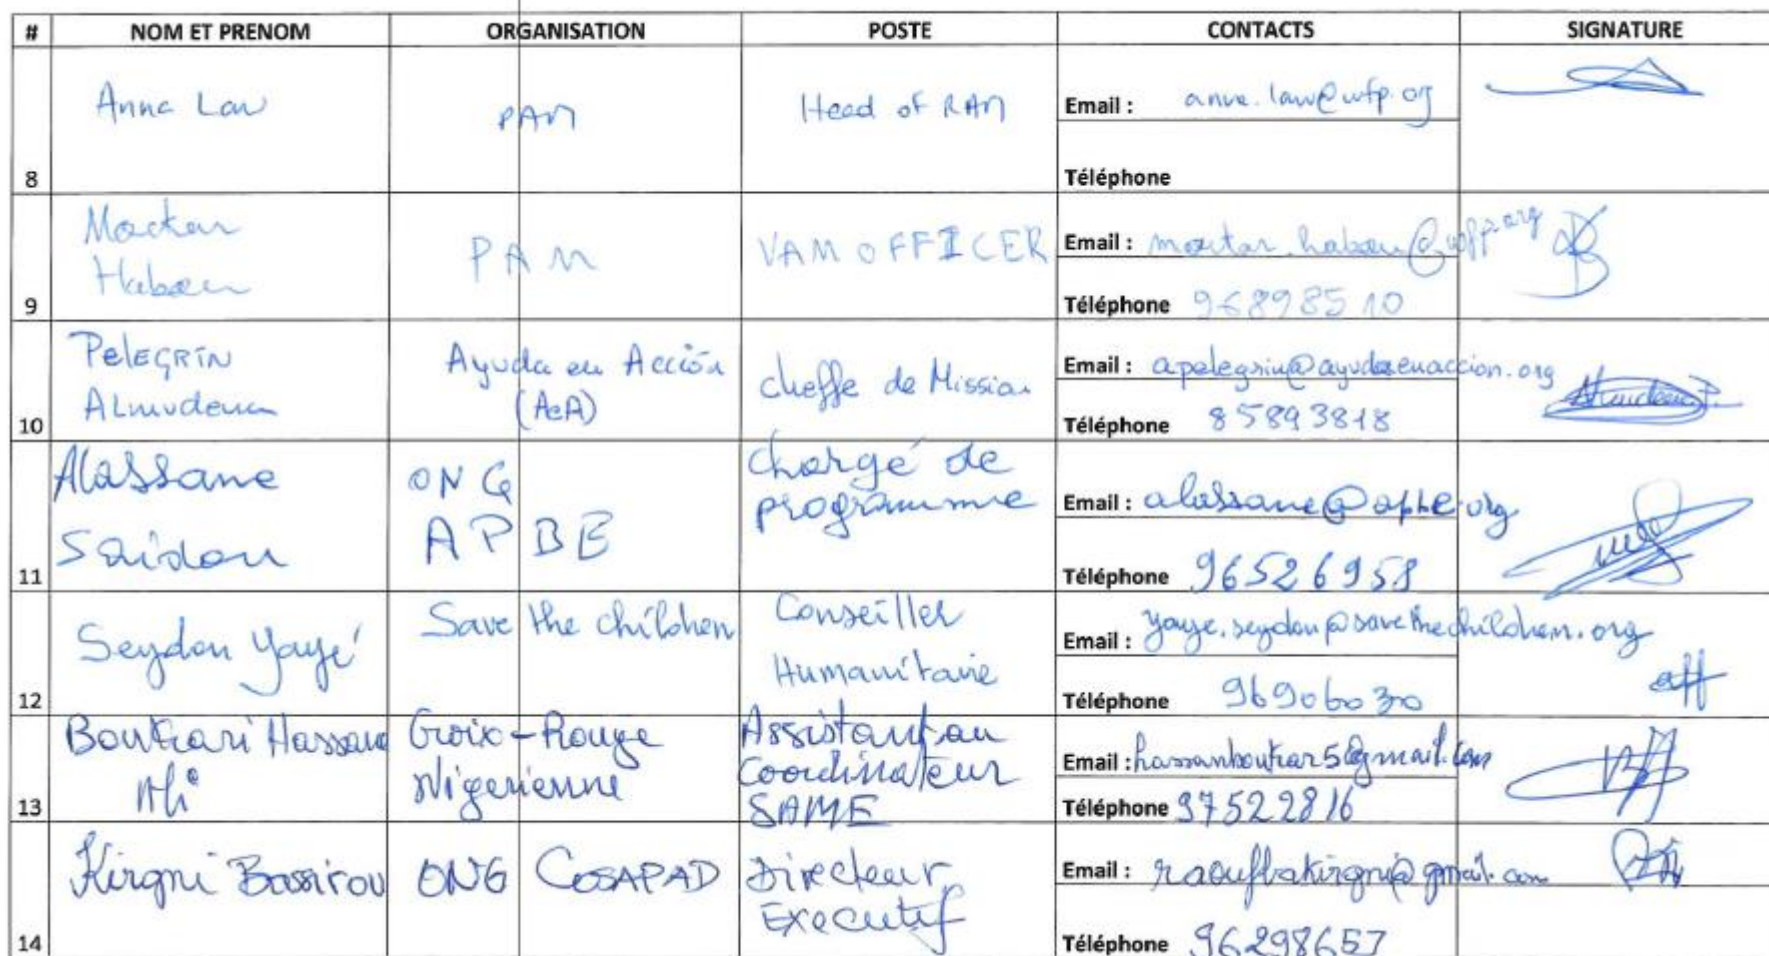 # NOM ET PRENOM ORGANISATION POSTE CONTACTS SIGNATURE
8 Anna Law PAM Head of RAM Email : anna.law@wfp.org
Téléphone
9 Moctar Habou PAM VAM OFFICER Email : moctar.habou@wfp.org
Téléphone 96898510
10 PELEGRIN Almudena Ayuda en Acción (AeA) cheffe de Mission Email : apelegrin@ayudaenaccion.org
Téléphone 85893818
11 Alassane Saidou ONG APBE Chargé de programme Email : alassane@apbe.org
Téléphone 96526958
12 Seydou Yayé Save the children Conseiller Humanitaire Email : yaye.seydou@savethechildren.org
Téléphone 96906030
13 Boukari Hassane Ali Croix-Rouge Nigerienne Assistant au Coordinateur SAME Email : hassanboukar5@gmail.com
Téléphone 97522816
14 Kirgni Bassirou ONG COSAPAD Directeur Executif Email : raouffbakirgni@gmail.com
Téléphone 96298657